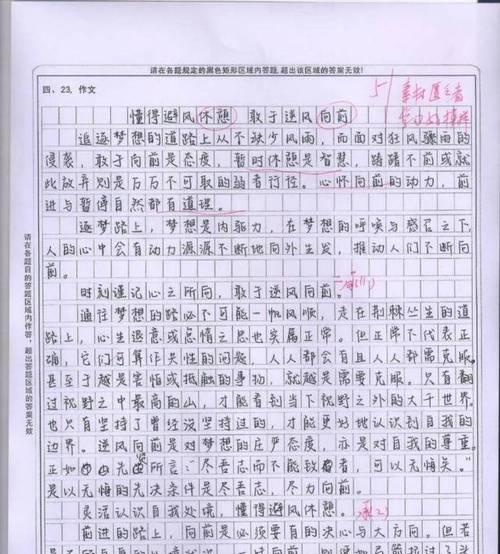 请在各题规定的黑色矩形区域内答题，超出该区域的答案无效！
四、23. 作文
懂得避风休憩 敢于逆风向前
追逐梦想的道路上从不缺少风雨，而面对狂风骤雨的
侵袭，敢于向前是态度，暂时休憩是智慧，踌躇不前或就
此放弃则是万万不可取的弱者行径。心怀向前的动力，前
进与暂停自然都有道理。
逐梦路上，梦想是内驱力，在梦想的呼唤与感召之下，
人的心中会有动力源源不断地向外生发，推动人们不断向
前。
时刻谨记心之所向，敢于逆风向前。
通往梦想的路必不可能一帆风顺，走在荆棘丛生的道
路上，心生退意或怠惰之思也实属正常。但正常不代表正
确，它们可算作共性的问题，人人都会有且人人都需克服，
甚至于越是害怕或抵触的事物，就越是需要克服。只有翻
过视野之中最高的山，才能看到当下视野之外的大千世界。
也只有坚持了曾经没坚持过的，才能更好地认识到自我的
边界。逆风向前是对梦想的庄严态度，亦是对自我的尊重。
正如 所言：“尽吾志而不能致者，可以无悔矣。”
是以无悔的先决条件是尽吾志，尽力向前。
灵活认识自我处境，懂得避风休憩。
前进的路上，向前是必须要有的决心与大方向。但若
请在各题目的答题区域内作答，超出答题区域的答案无效
5